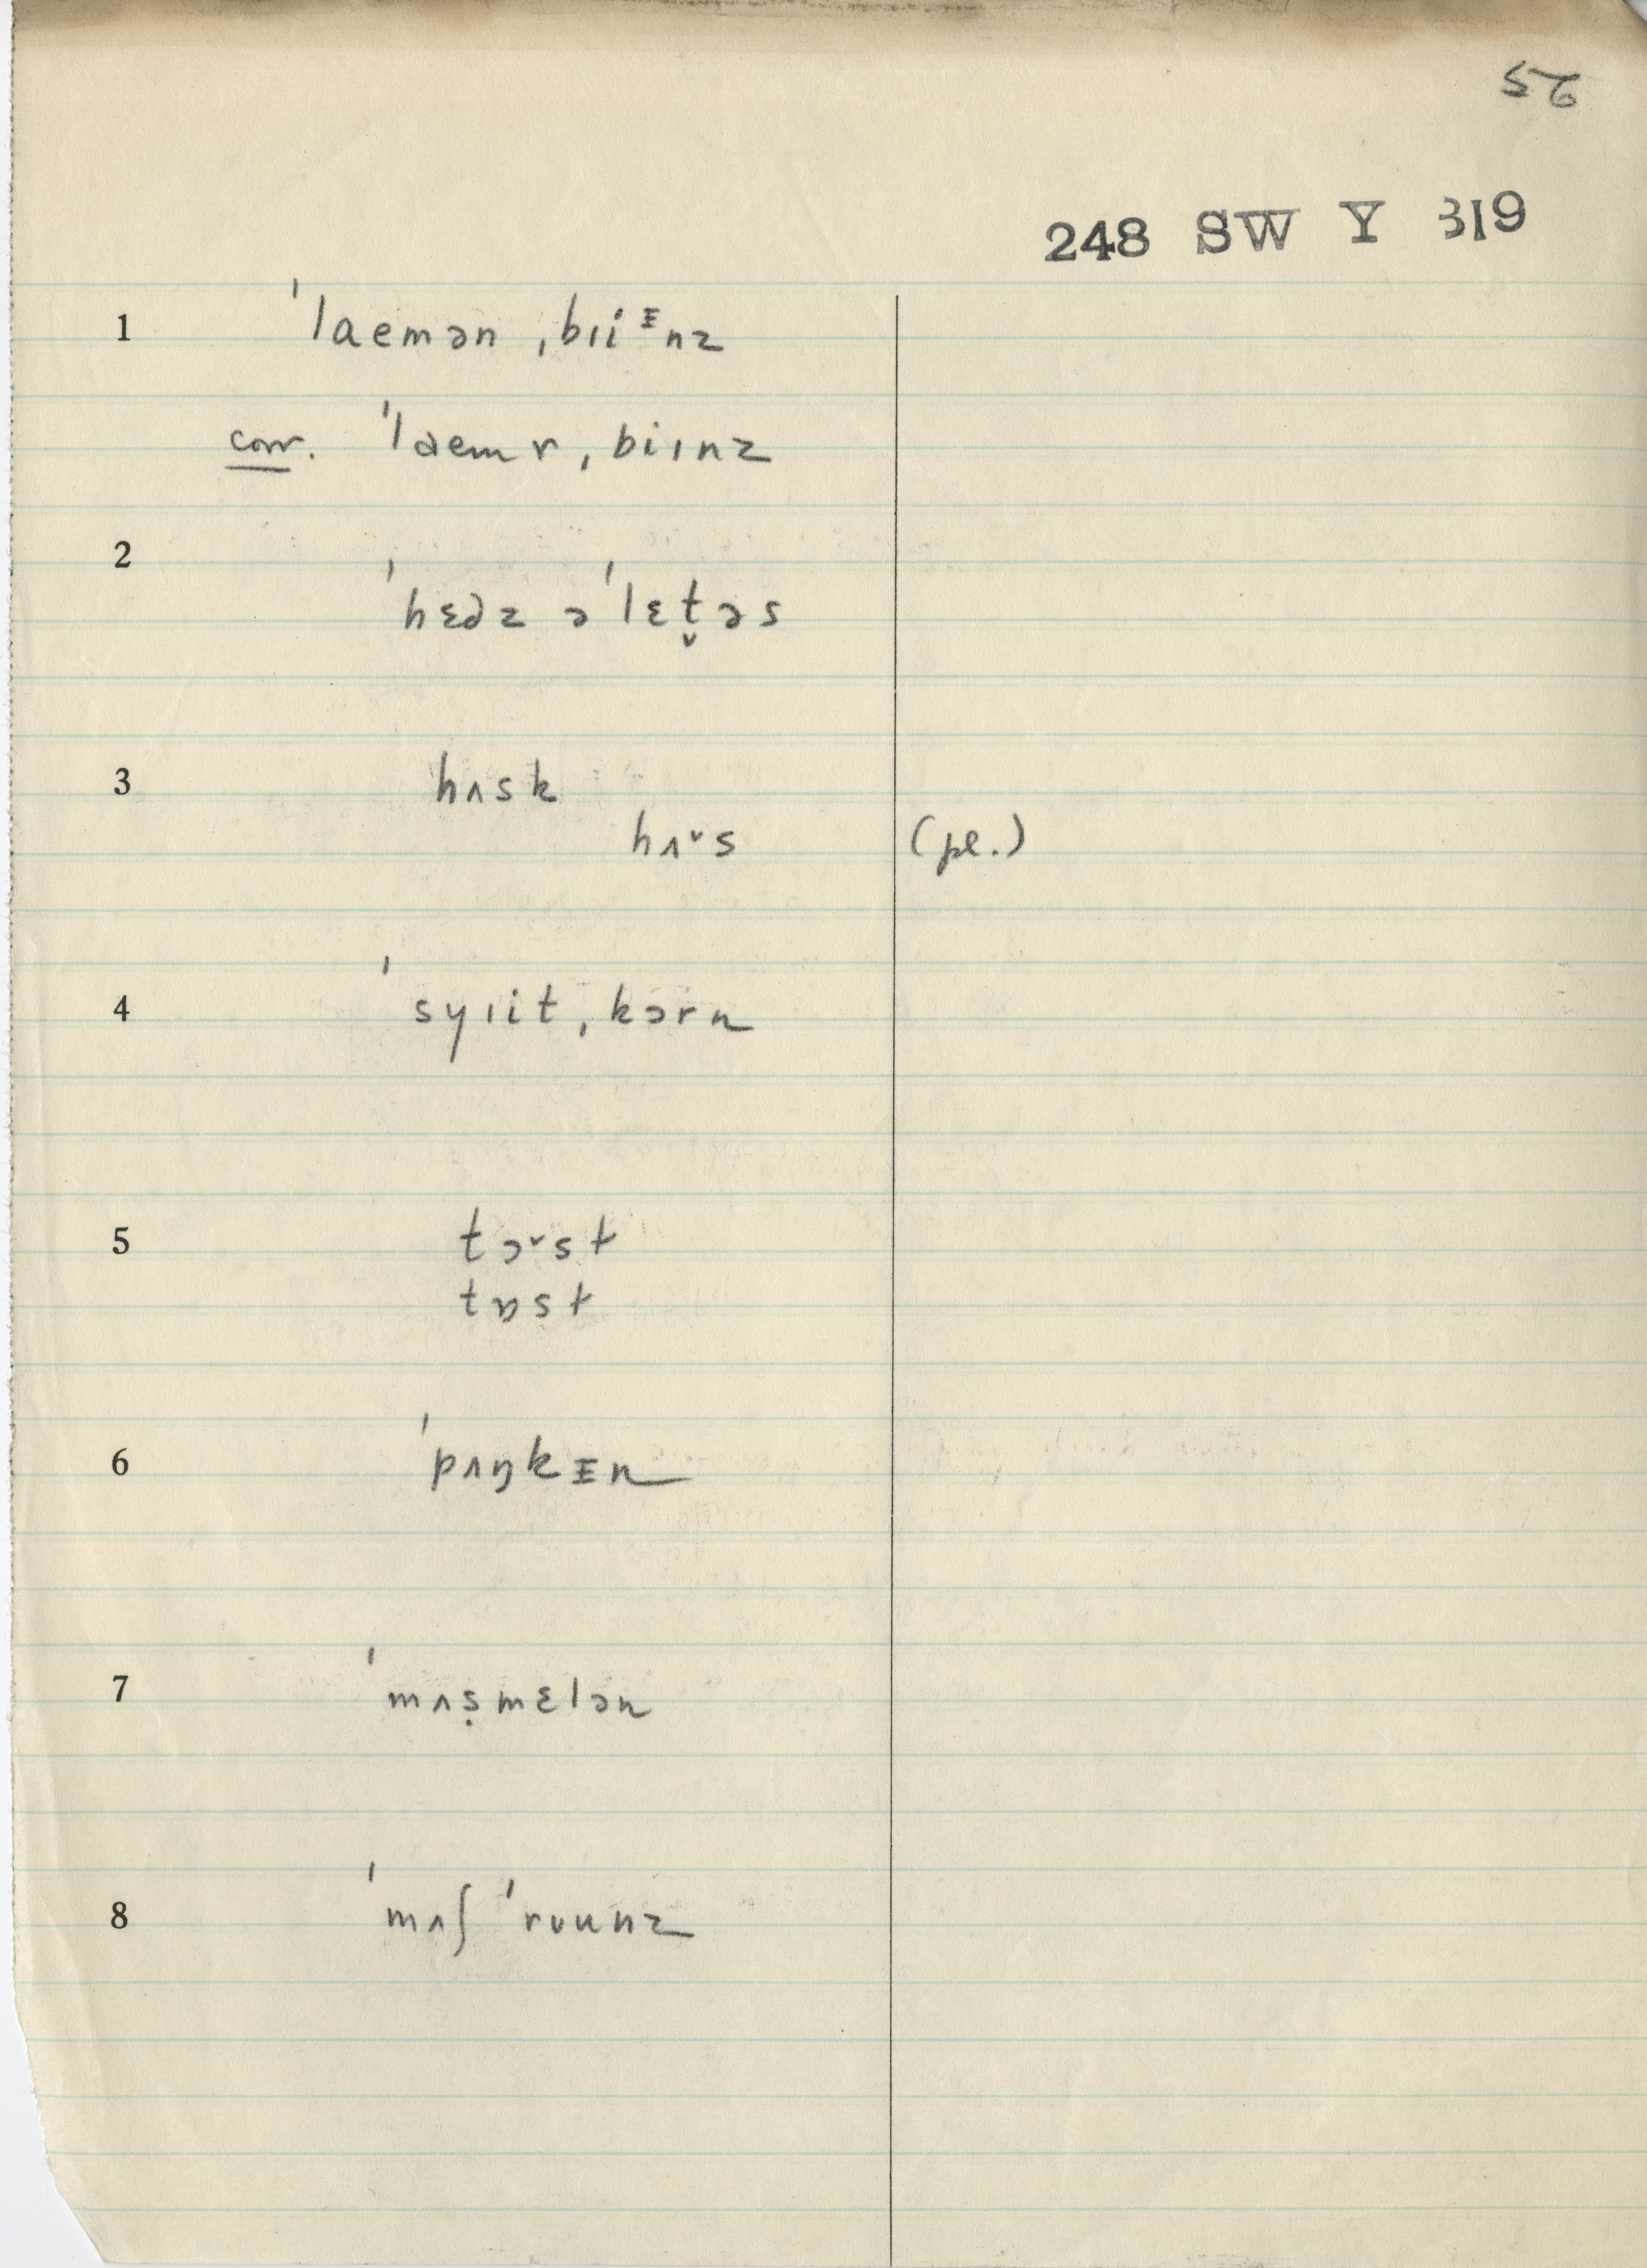 56
248 SW Y 319
1 ˈlaemən ˌbɪiᵻnz
corr. ˈlaemɤ ˌbiɪnz
2 ˈhɛdz ə ˈlɛt̬əs
3 hʌsk
hʌˇs (pl.)
4 ˈsyɪit ˌkɔrn
5 tɔˇst
tɒst
6 ˈpʌŋkᵻn
7 ˈmʌṣmɛlən
8 ˈmʌʃ ˈrʊunz